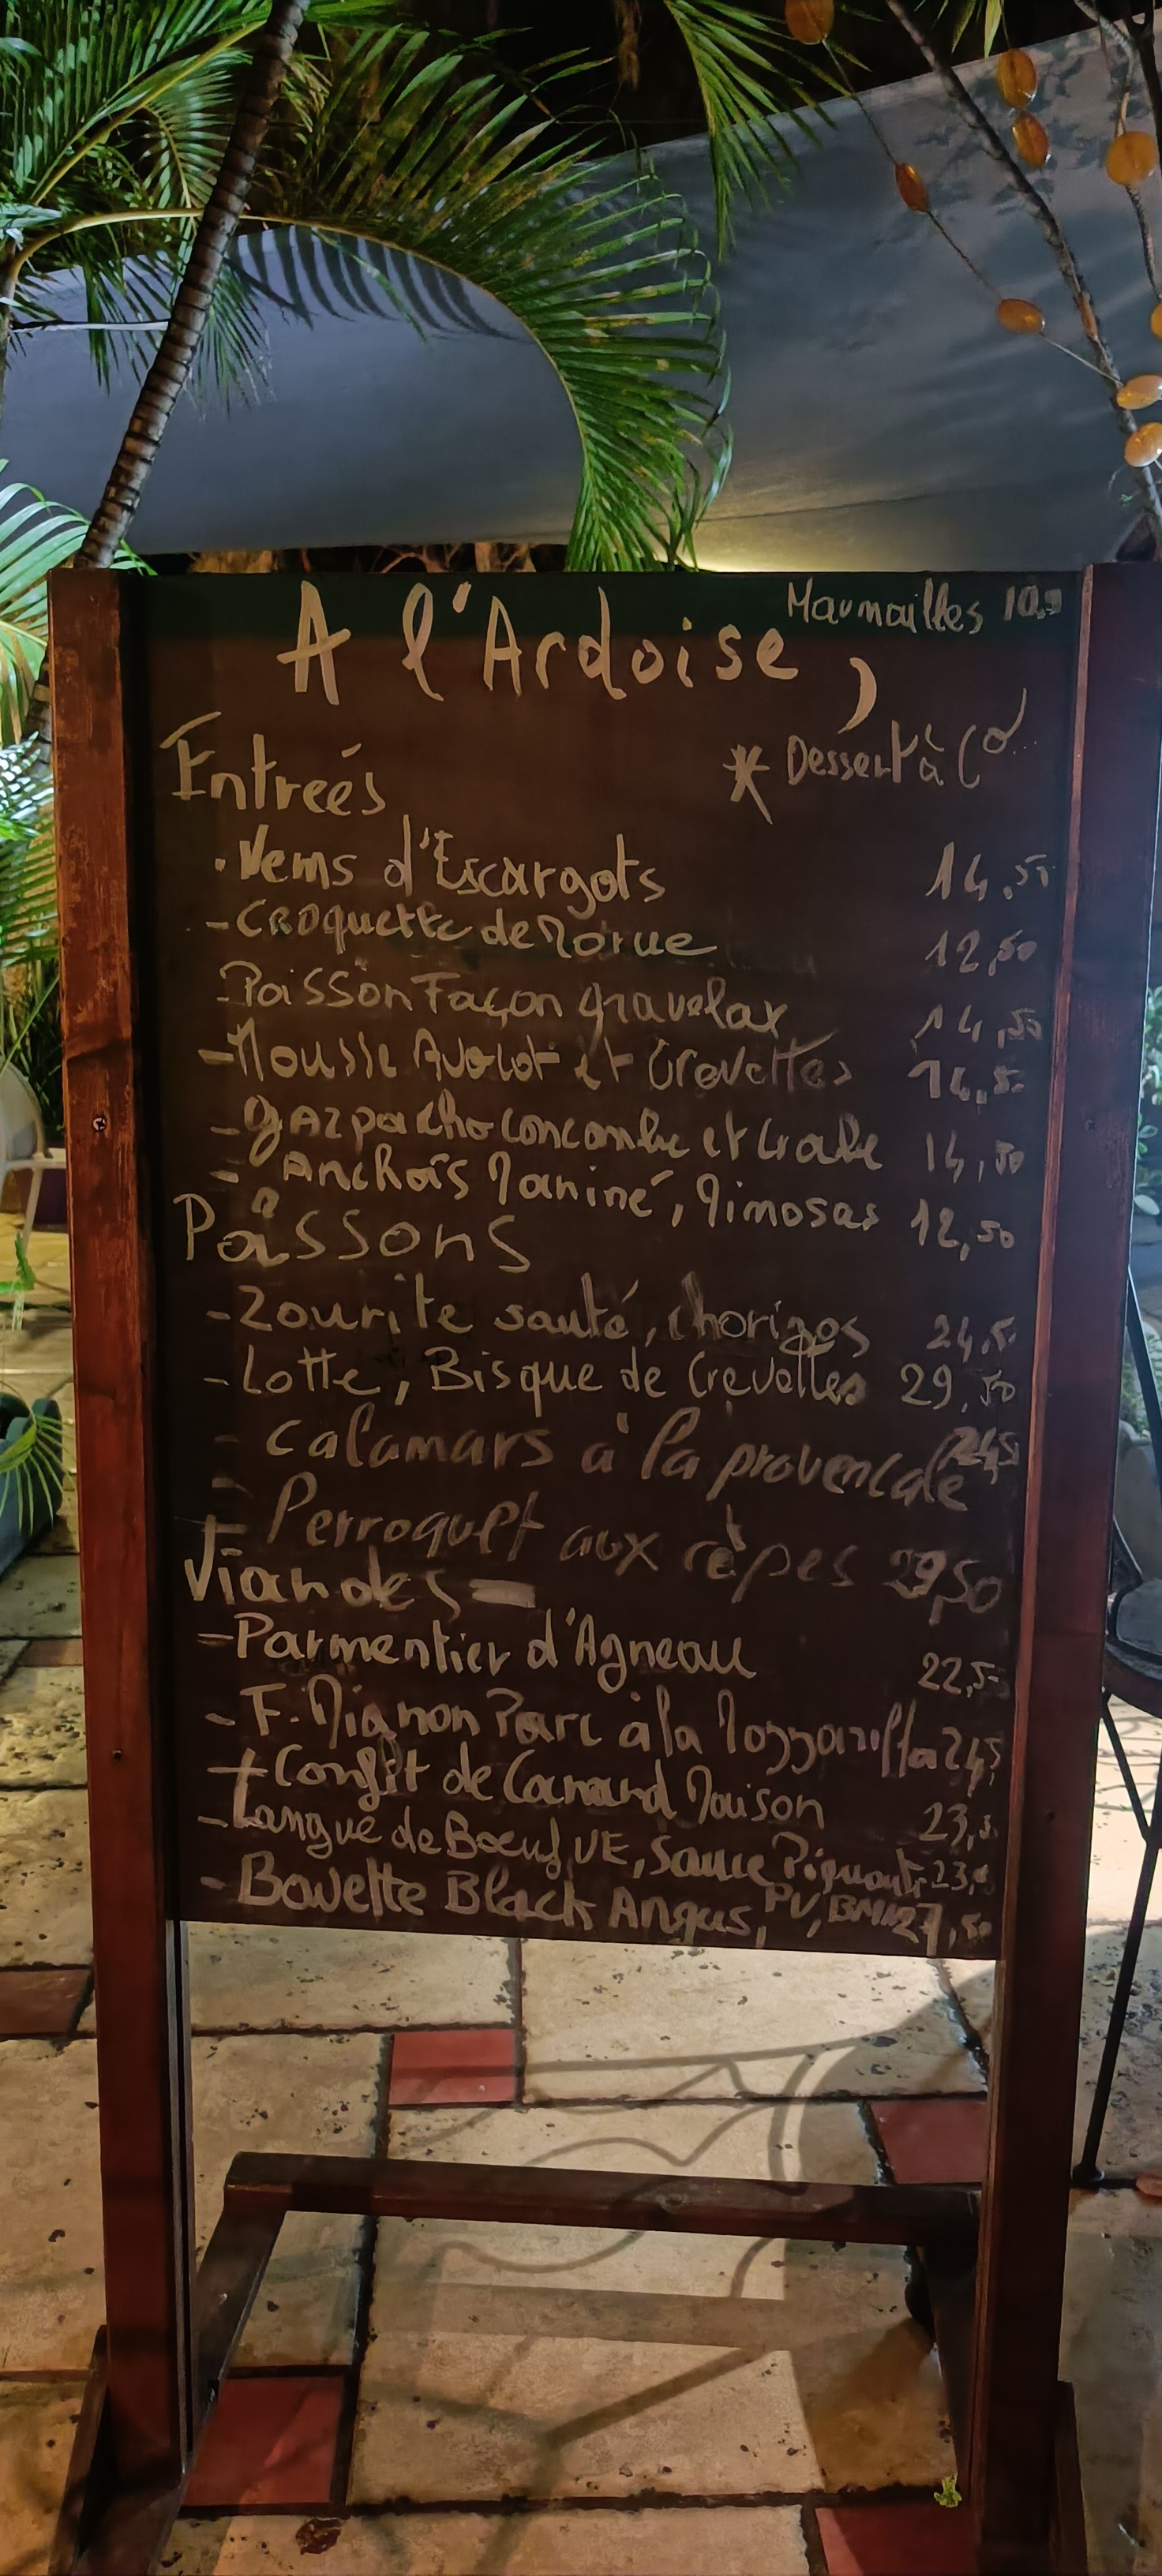 Maumailles 10,
A l'Ardoise,
* Dessert à Cô
Entreés
. Nems d'Escargots 14,50
- CROquette de Morue 12,50
- Poisson Façon gravelax 14,50
- Mousse Avocat et Crevettes 14,50
- gAzpacho concombre et Crabe 14,50
- Anchois Mariné, Mimosas 12,50
Poissons
- Zourite sauté, chorizos 24,5
- Lotte, Bisque de Crevettes 29,50
- Calamars à la provencale 24,5
- Perroquet aux cèpes 29,50
Viandes
- Parmentier d'Agneau 22,5
- F. Mignon Parc à la Mozzarella 24,5
+ Confit de Canard Maison 23,
- Langue de Boeuf, VE, Sauce Piquante 23,
- Bavette Black Angus, PV, 27,50